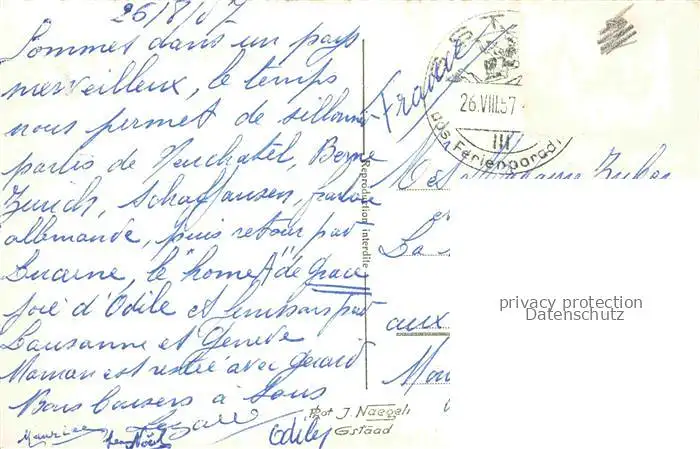 26/8/57
Sommes dans un pays
merveilleux, le temps
nous permet de sillonner
partis de Neuchatel, Berne
Zurich, Schaffausen,
allemande, puis retour par
Lucerne, le "home" de Grace
joie d'Odile et finissons par
Lausanne et Genève
Maman est restée avec Gérard
Bons baisers à tous
Maurice
Odile
Reproduction interdite
Phot J. Naegeli
Gstaad
France
26.VIII.57
III
das Ferienparadi
M et
et
La
aux
privacy protection
Datenschutz